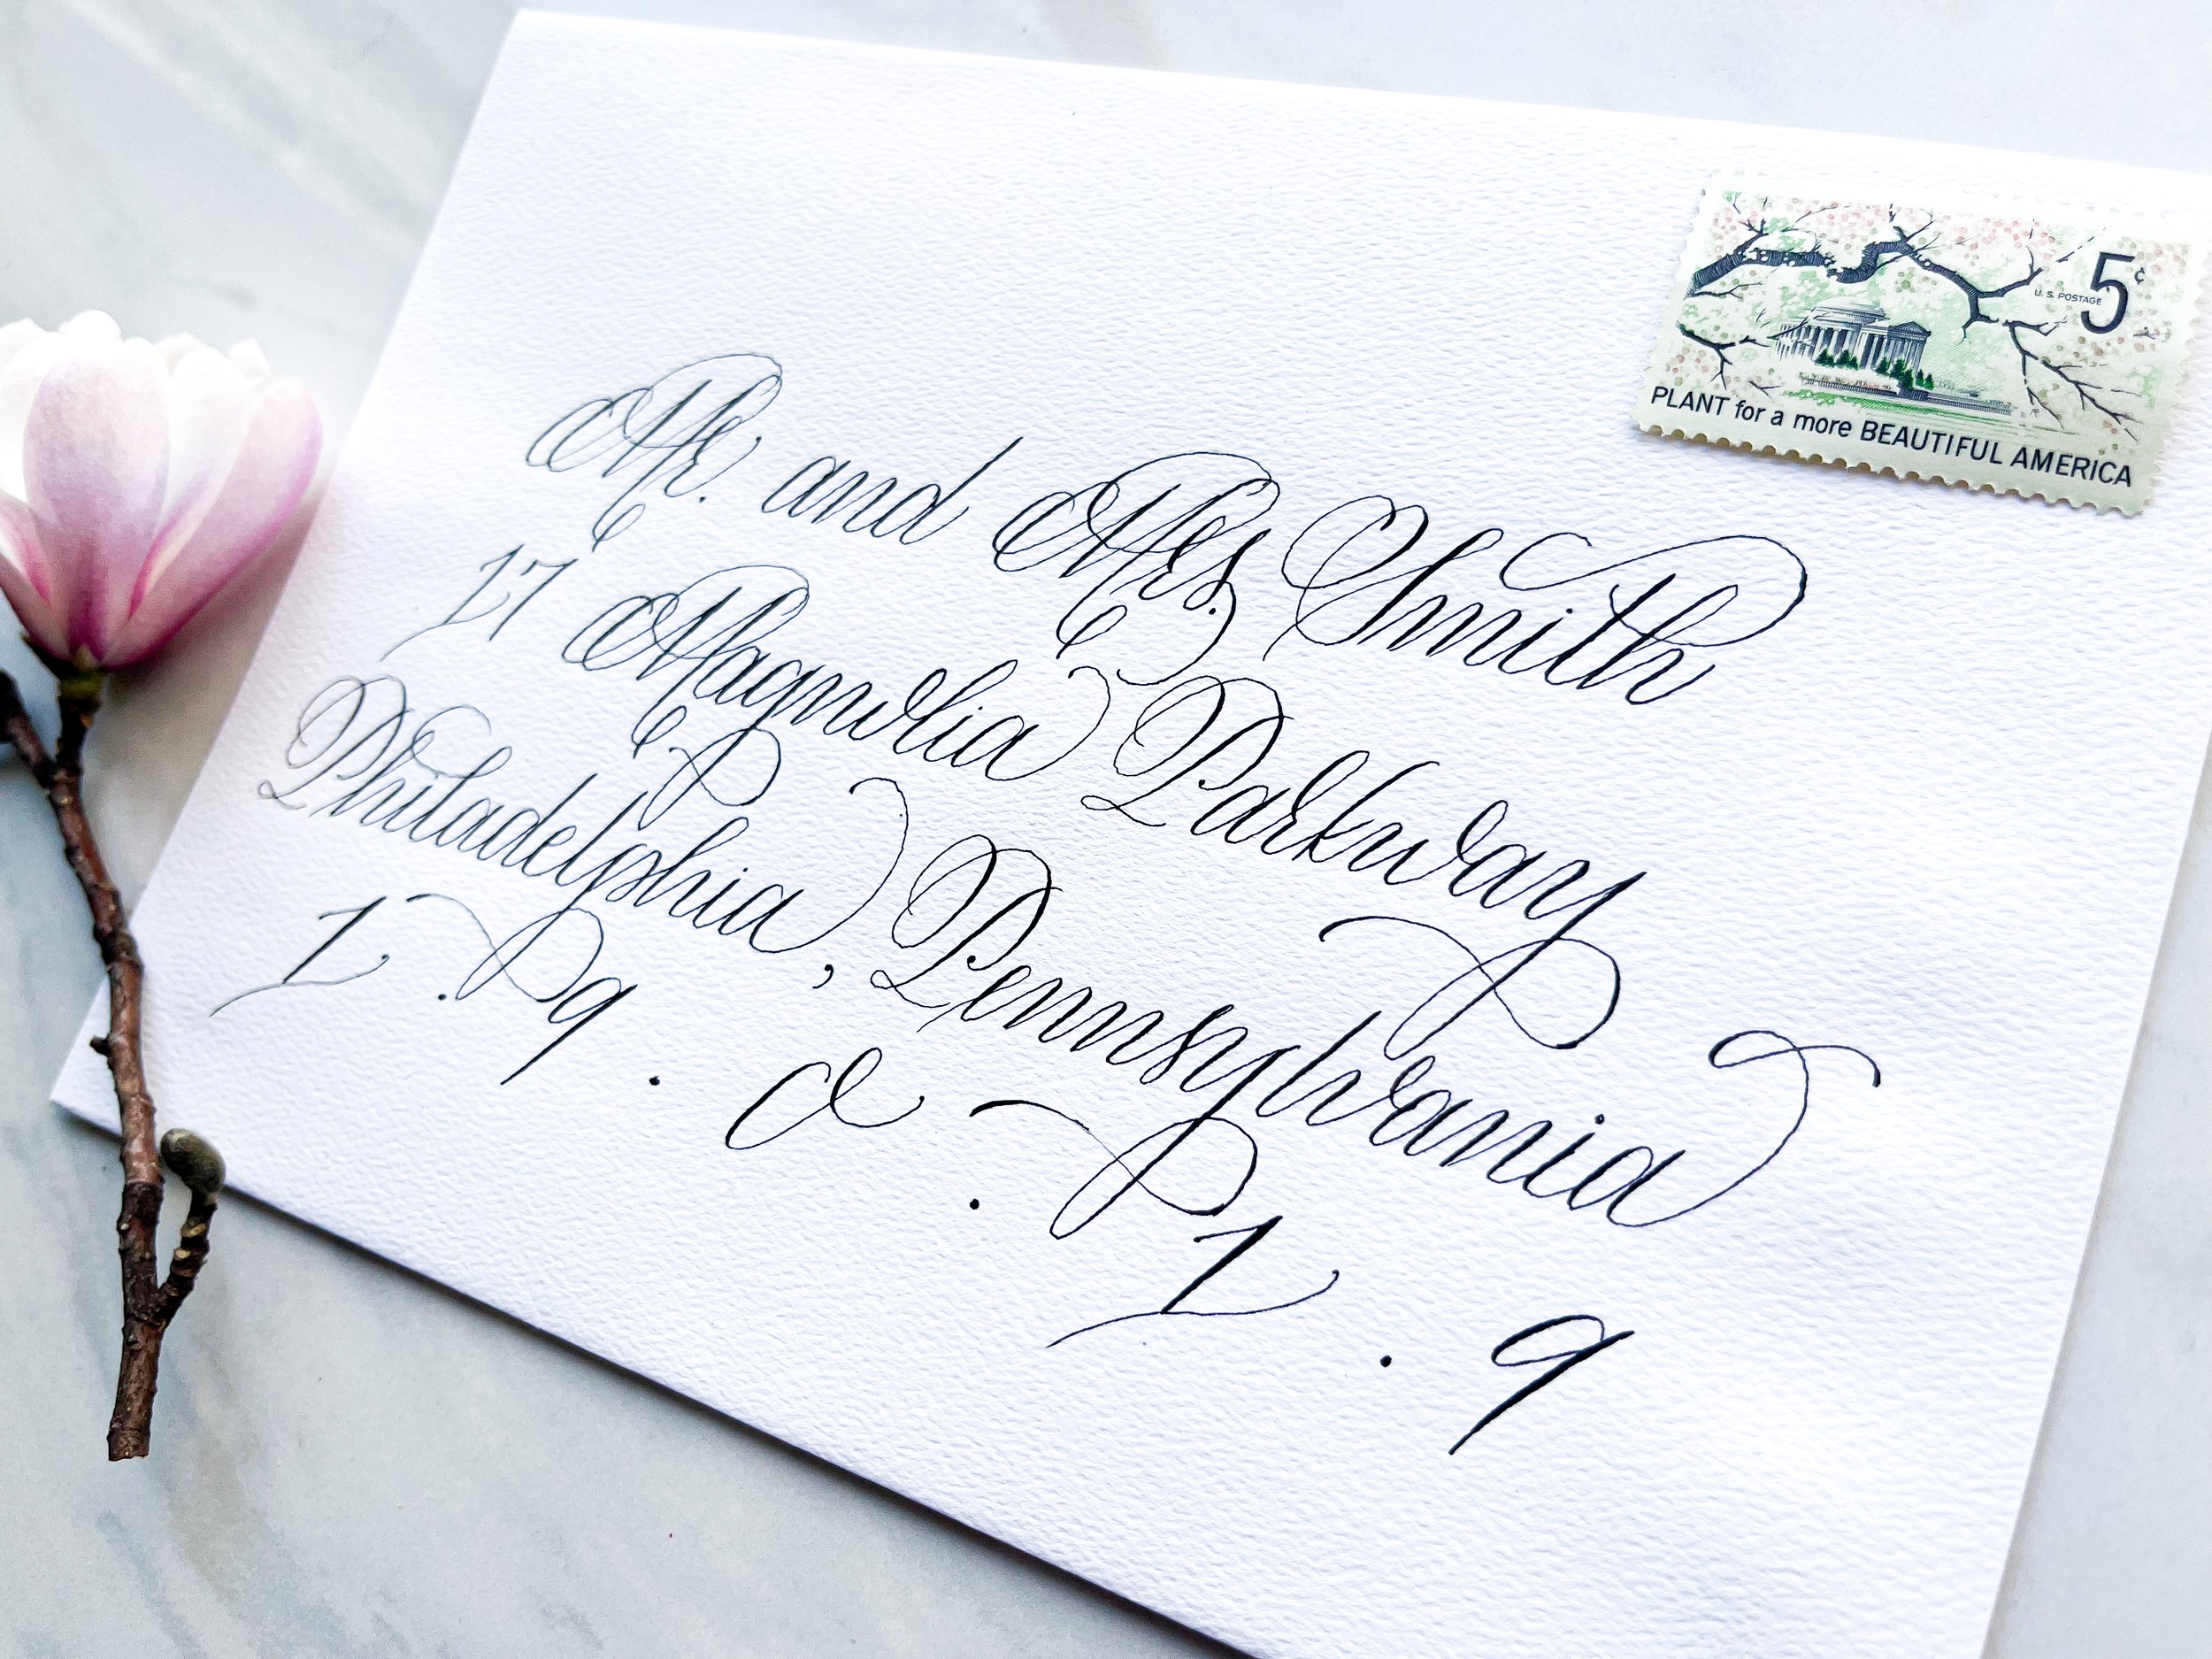 U.S. POSTAGE 5¢
PLANT for a more BEAUTIFUL AMERICA
Mr. and Mrs. Smith
17 Magnolia Parkway
Philadelphia, Pennsylvania
1 . 9 . 0 . 1 . 9